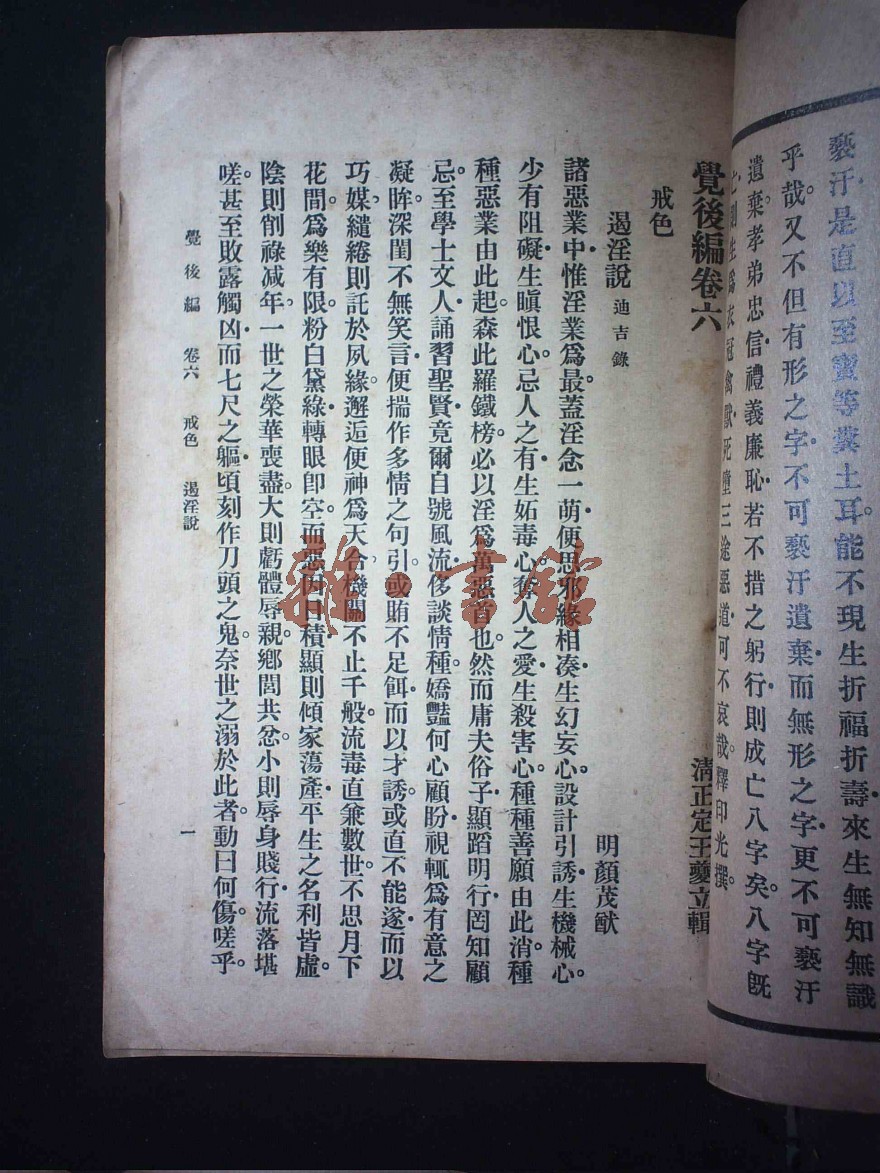 褻汙是直以至寶等糞土耳能不現生折福折壽來生無知無識
乎哉。又不但有形之字不可褻汙遺棄而無形之字更不可褻汙
遺棄孝弟忠信禮義廉恥若不措之躬行則成亡八字矣。八字旣
亡則生爲衣冠禽獸死墮三途惡道可不哀哉。釋印光撰。
覺後編卷六
清正定王夔立輯
戒色
遏淫說 迪吉錄 明顏茂猷
諸惡業中惟淫業爲最。蓋淫念一萌便思邪緣相湊生幻妄心。設計引誘生機械心。
少有阻礙生瞋恨心。忌人之有生妬毒心。奪人之愛生殺害心。種種善願由此消。種
種惡業由此起。森此羅鐵榜。必以淫爲萬惡首也。然而庸夫俗子顯蹈明行罔知顧
忌。至學士文人誦習聖賢竟爾自號風流侈談情種。嬌豔何心顧盼視輒爲有意之
凝眸。深閨不無笑言便揣作多情之句引。或賄不足餌而以才誘。或直不能遂而以
巧媒。繾綣則託於夙緣邂逅便神爲天合機關不止千般。流毒直兼數世。不思月下
花間。爲樂有限。粉白黛綠轉眼卽空。而惡因日積顯則傾家蕩產平生之名利皆虛。
陰則削祿减年。一世之榮華喪盡。大則虧體辱親。鄕閭共忿。小則辱身賤行流落堪
嗟。甚至敗露觸凶而七尺之軀頃刻作刀頭之鬼。奈世之溺於此者動曰何傷。嗟乎。
覺後編 卷六 戒色 遏淫說 一
雜·書館